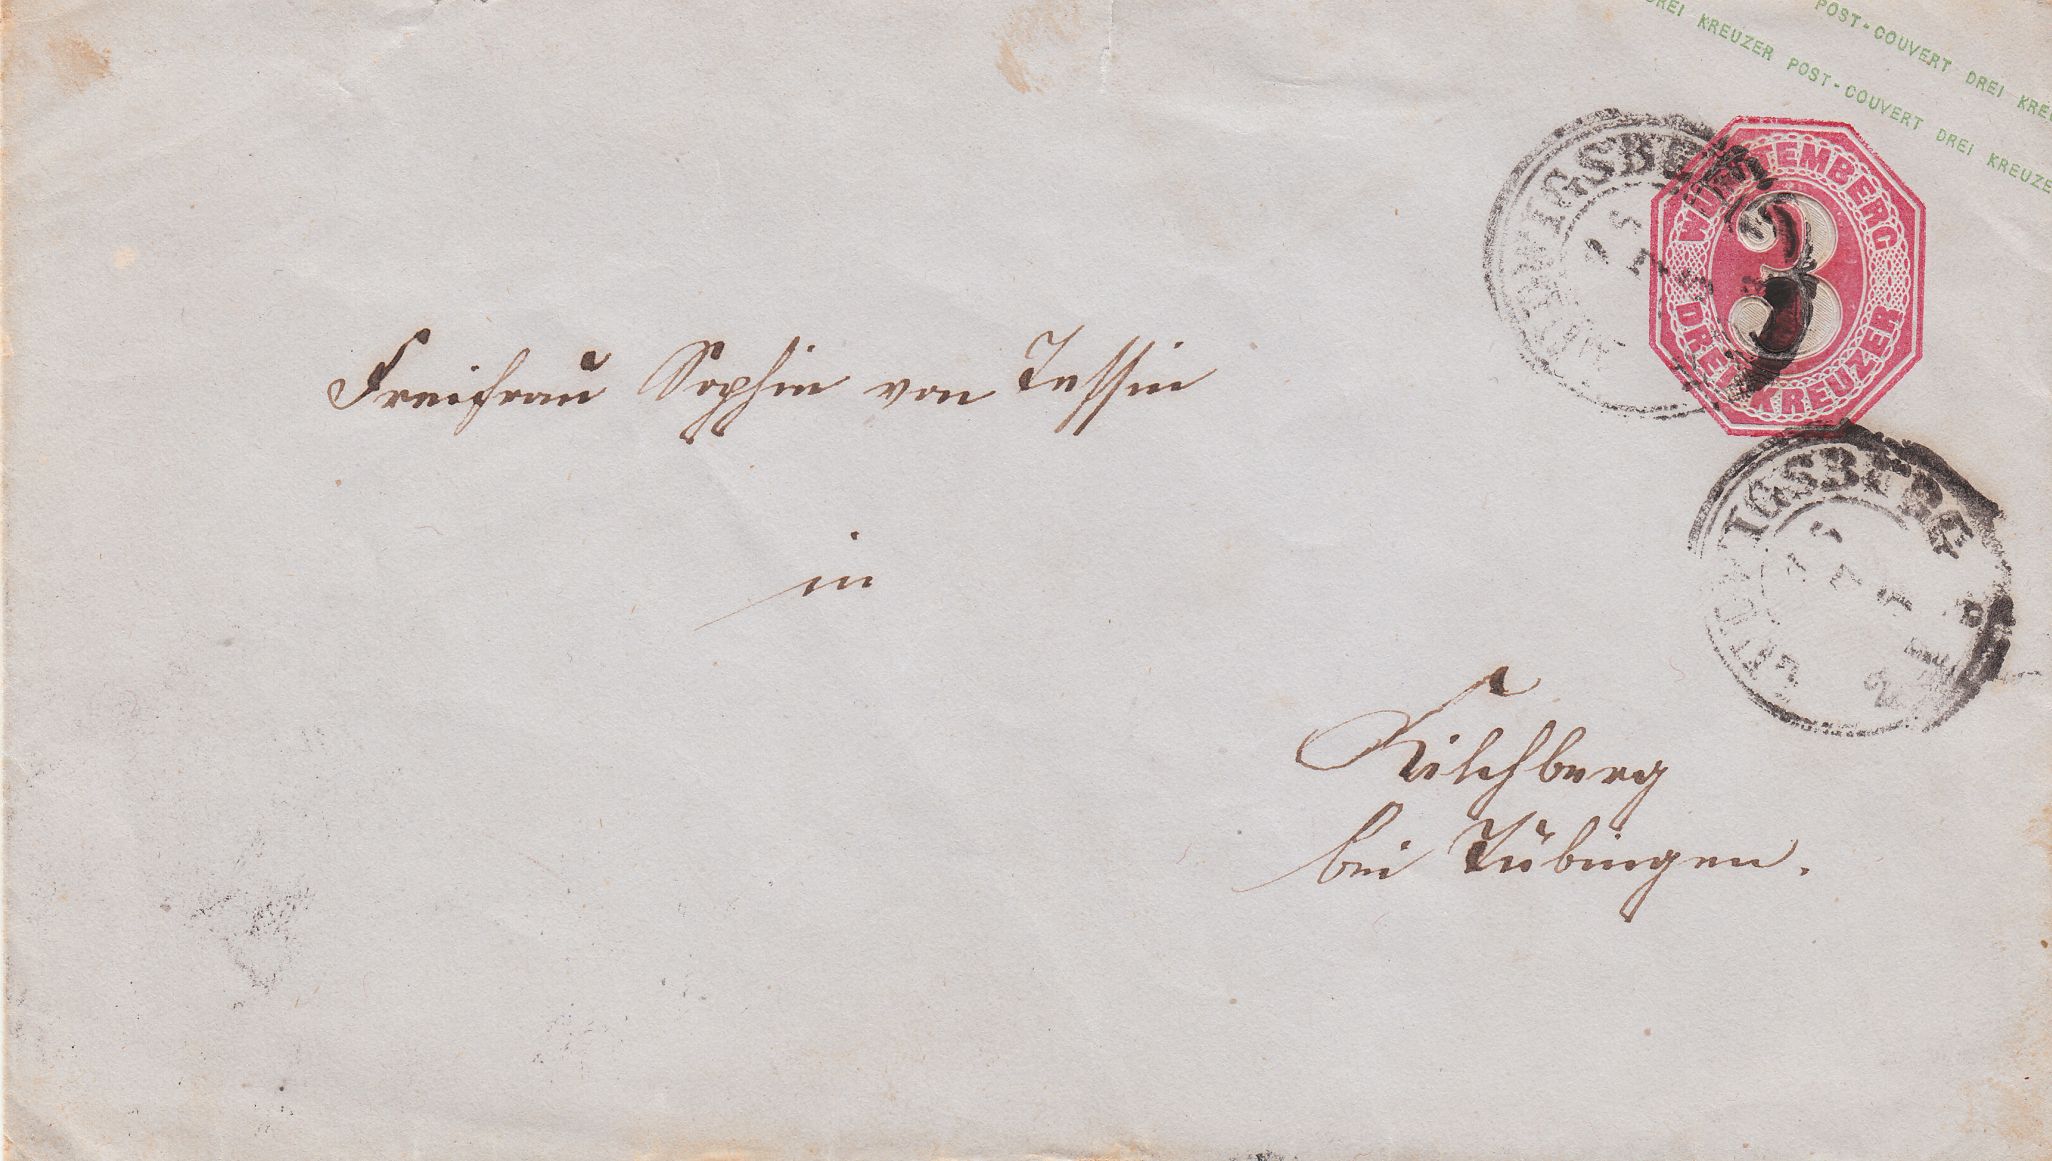 POST-COUVERT DREI KREU
DREI KREUZER POST-COUVERT DREI KREUZER
WÜRTTEMBERG
3
DREI KREUZER
LUDWIGSBURG
LUDWIGSBURG
Freifrau Sophie von Tessin
in
Kilchberg
bei Tübingen.